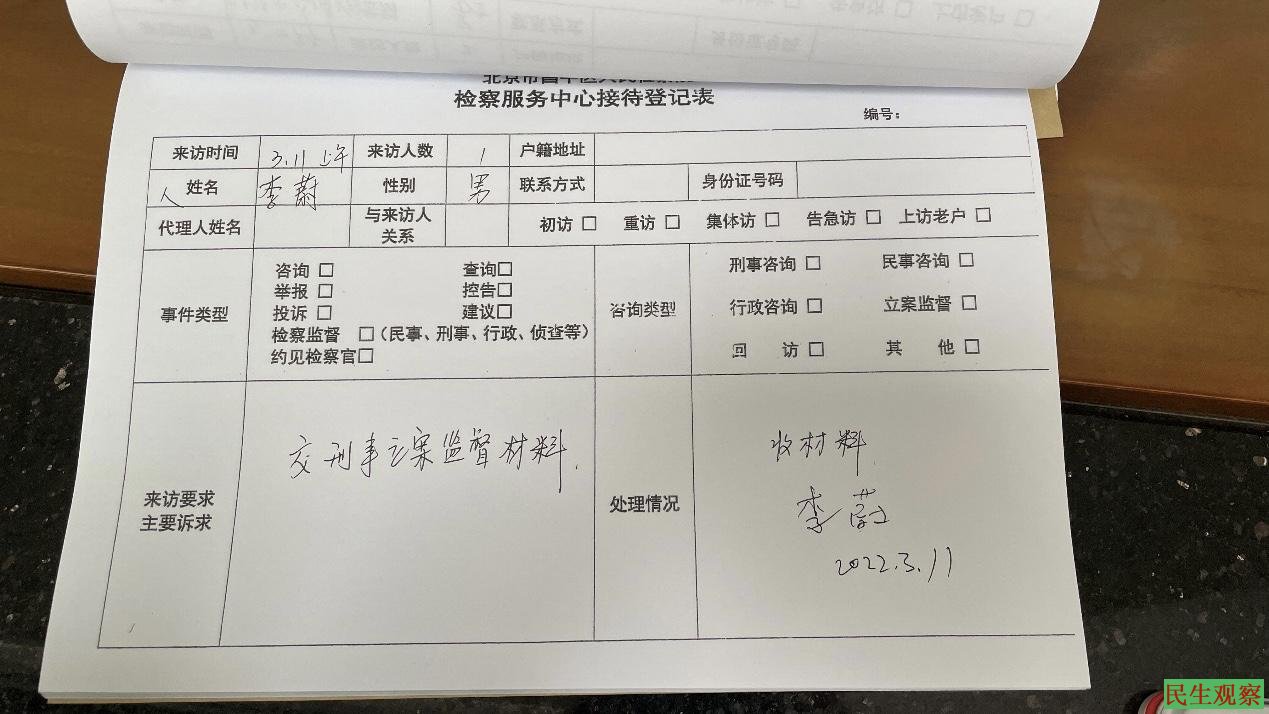 检察服务中心接待登记表
编号：
来访时间 3.11 上午 来访人数 1 户籍地址
人 姓名 李蔚 性别 男 联系方式 身份证号码
代理人姓名 与来访人关系 初访 □ 重访 □ 集体访 □ 告急访 □ 上访老户 □
事件类型
咨询 □ 查询□
举报 □ 控告□
投诉 □ 建议□
检察监督 □（民事、刑事、行政、侦查等）
约见检察官□
咨询类型
刑事咨询 □ 民事咨询 □
行政咨询 □ 立案监督 □
回 访 □ 其 他 □
来访要求
主要诉求
交刑事立案监督材料.
处理情况
收材料
李蔚
2022.3.11
民生观察